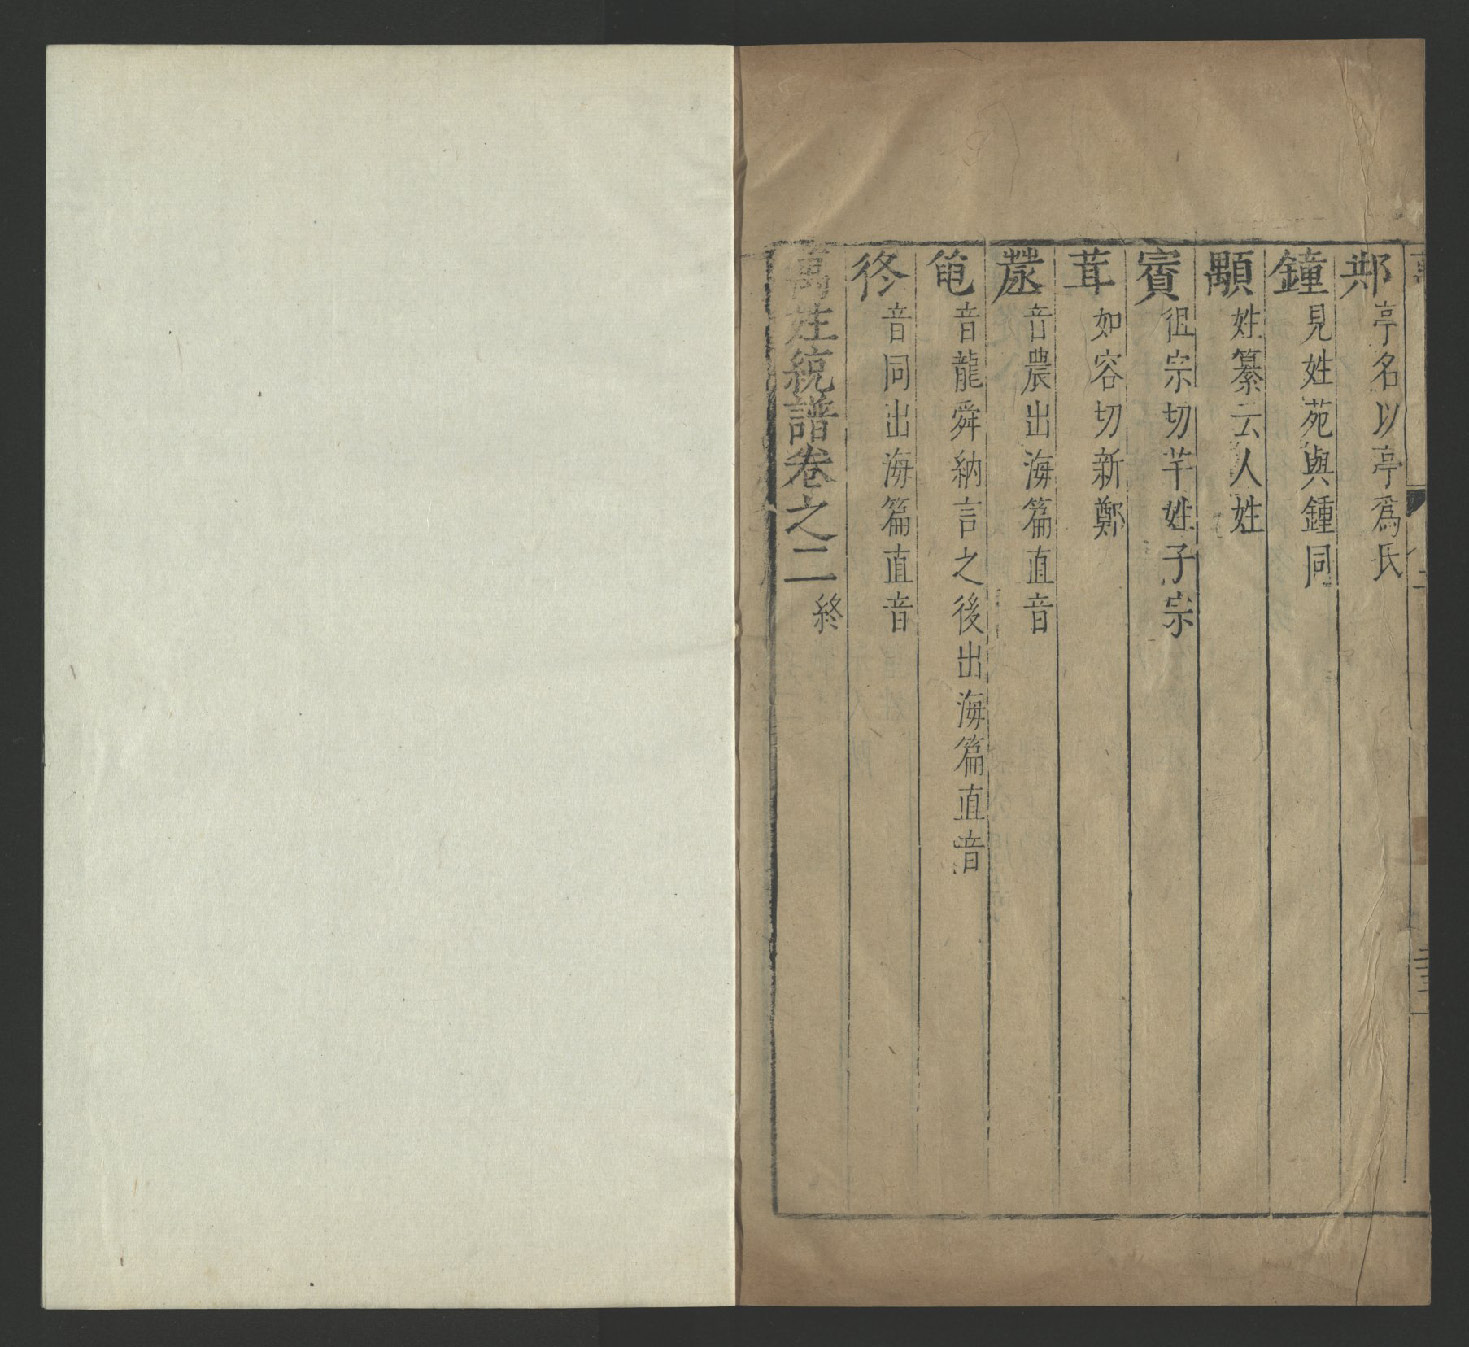 邞 亭名以亭爲氏
鐘 見姓苑與鍾同
顒 姓纂云人姓
賨 徂宗切芊姓子宗
茸 如容切新鄭
音農出海篇直音
音龍舜納言之後出海篇直音
佟 音同出海篇直音
萬姓統譜卷之二 終